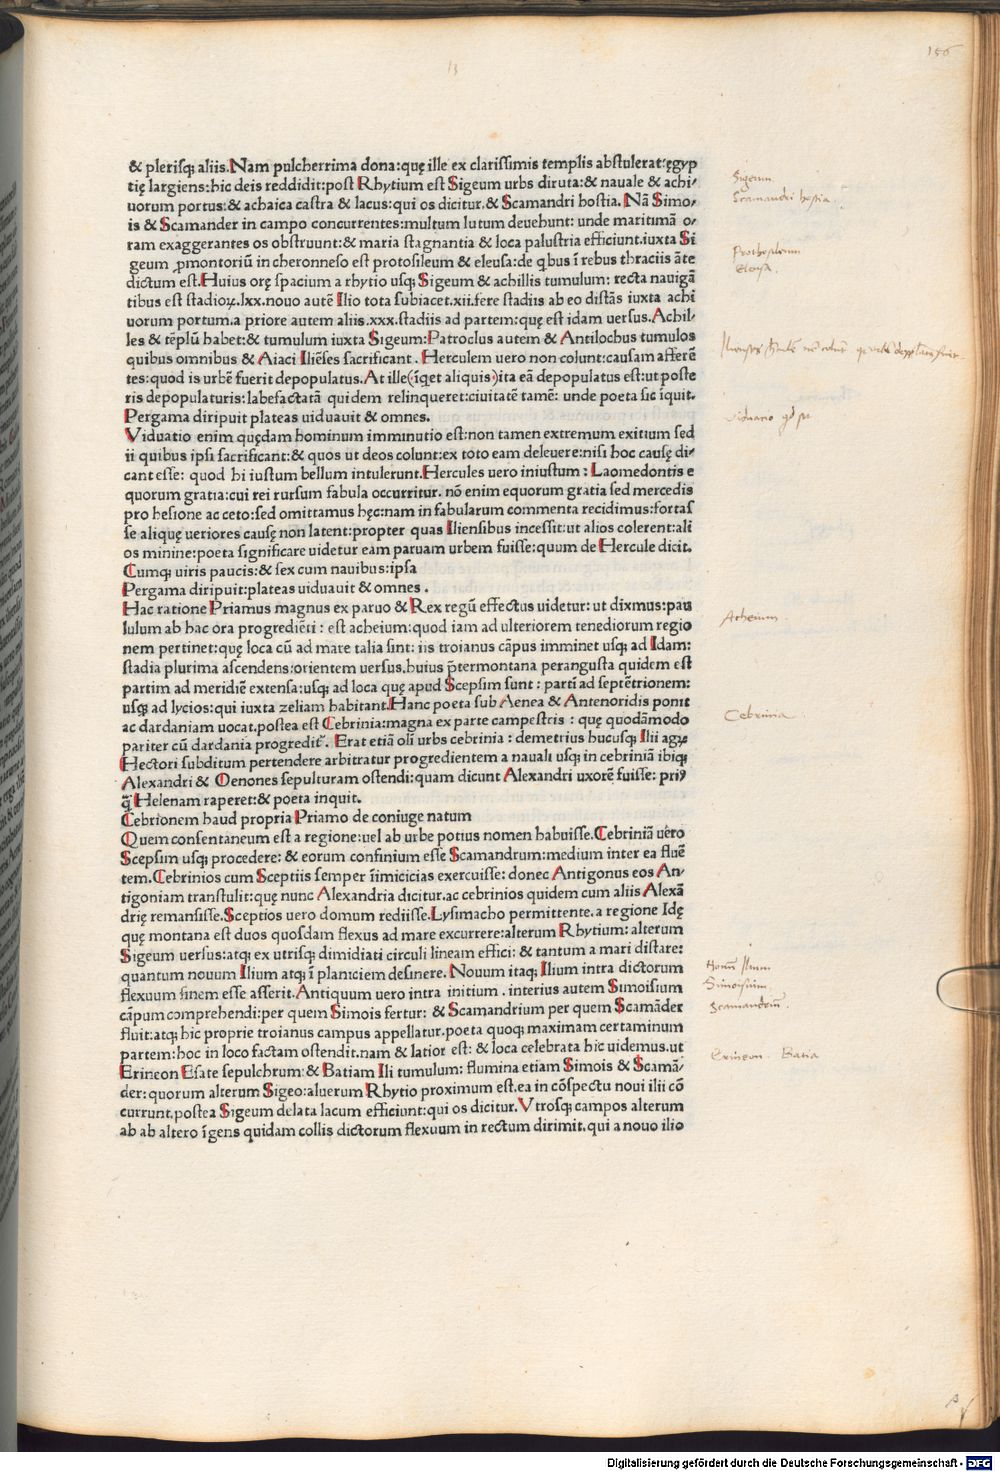 156
13
& plerisq; aliis.Nam pulcherrima dona:quę ille ex clarissimis templis abstulerat:ęgyp
tię largiens:hic deis reddidit:post Rhytium est Sigeum urbs diruta:& nauale & achi/
uorum portus:& achaica castra & lacus:qui os dicitur.& Scamandri hostia. Nā Simo/
is & Scamander in campo concurrentes:multum lutum deuehunt: unde maritimā o/
ram exaggerantes os obstruunt:& maria stagnantia & loca palustria efficiunt.iuxta Si
geum ꝓmontoriū in cheronneso est protosileum & eleusa:de qbus ī rebus thraciis āte
dictum est.Huius orę spacium a rhytio usq; Sigeum & achillis tumulum: recta nauigā
tibus est stadioꝝ.lxx.nouo autē Ilio tota subiacet.xii.fere stadiis ab eo distās iuxta achi
uorum portum.a priore autem aliis.xxx.stadiis ad partem:quę est idam uersus.Achil/
les & tēplū habet:& tumulum iuxta Sigeum:Patroclus autem & Antilochus tumulos
quibus omnibus & Aiaci Iliēses sacrificant. Herculem uero non colunt:causam afferē
tes:quod is urbē fuerit depopulatus.At ille(īqet aliquis)ita eā depopulatus est:ut poste
ris depopulaturis:labefactatā quidem relinqueret:ciuitatē tamē: unde poeta sic īquit.
Pergama diripuit plateas uiduauit & omnes.
Viduatio enim quędam hominum imminutio est:non tamen extremum exitium sed
ii quibus ipsi sacrificant:& quos ut deos colunt:ex toto eam deleuere:nisi hoc causę di/
cant esse: quod hi iustum bellum intulerunt.Hercules uero iniustum: Laomedontis e
quorum gratia:cui rei rursum fabula occurritur. nō enim equorum gratia sed mercedis
pro hesione ac ceto:sed omittamus hęc:nam in fabularum commenta recidimus:fortas
se aliquę ueriores causę non latent:propter quas Iliensibus incessit:ut alios colerent:ali
os minine:poeta significare uidetur eam paruam urbem fuisse:quum de Hercule dicit.
Cumq; uiris paucis:& sex cum nauibus:ipsa
Pergama diripuit:plateas uiduauit & omnes.
Hac ratione Priamus magnus ex paruo & Rex regū effectus uidetur: ut diximus:pau
lulum ab hac ora progrediēti: est acheium:quod iam ad ulteriorem tenediorum regio
nem pertinet:quę loca cū ad mare talia sint: iis troianus cāpus imminet usq; ad Idam:
stadia plurima ascendens:orientem uersus.huius p̄termontana perangusta quidem est
partim ad meridiē extensa:usq; ad loca quę apud Scepsim sunt: partī ad septētrionem:
usq; ad lycios:qui iuxta zeliam habitant.Hanc poeta sub Aenea & Antenoridis ponit
ac dardaniam uocat.postea est Cebrinia:magna ex parte campestris: quę quodāmodo
pariter cū dardania progredit̄. Erat etiā olī urbs cebrinia: demetrius hucusq; Ilii agꝝ
Hectori subditum pertendere arbitratur progredientem a nauali usq; in cebriniā ibiq;
Alexandri & Oenones sepulturam ostendi:quam dicunt Alexandri uxorē fuisse: priꝰ
q̄ Helenam raperet:& poeta inquit.
Cebrionem haud propria Priamo de coniuge natum
Quem consentaneum est a regione:uel ab urbe potius nomen habuisse.Cebriniā uero
Scepsim usq; procedere: & eorum confinium esse Scamandrum:medium inter ea fluē
tem.Cebrinios cum Sceptiis semper īimicicias exercuisse: donec Antigonus eos An/
tigoniam transtulit:quę nunc Alexandria dicitur.ac cebrinios quidem cum aliis Alexā
drię remansisse.Sceptios uero domum rediisse.Lysimacho permittente.a regione Idę
quę montana est duos quosdam flexus ad mare excurrere:alterum Rhytium: alterum
Sigeum uersus:atq; ex utrisq; dimidiati circuli lineam effici: & tantum a mari distare:
quantum nouum Ilium atq; ī planiciem desinere. Nouum itaq; Ilium intra dictorum
flexuum finem esse asserit.Antiquum uero intra initium. interius autem Simoisium
cāpum comprehendi:per quem Simois fertur: & Scamandrium per quem Scamāder
fluit:atq; hic proprie troianus campus appellatur.poeta quoq; maximam certaminum
partem:hoc in loco factam ostendit.nam & latior est: & loca celebrata hic uidemus.ut
Erineon Esate sepulchrum:& Batiam Ili tumulum: flumina etiam Simois & Scamā/
der: quorum alterum Sigeo:aluerum Rhytio proximum est.ea in cōspectu noui ilii cō
currunt.postea Sigeum delata lacum efficiunt:qui os dicitur.Vtrosq; campos alterum
ab ab altero īgens quidam collis dictorum flexuum in rectum dirimit.qui a nouo ilio
Sigeum
Scamandri hostia.
Prothosileum
Eleusa.
Viduatio qd sit
Acheium.
Cebrinia
Nouum Ilium
Simoisium.
Scamandrium.
Erineon. Batia
Digitalisierung gefördert durch die Deutsche Forschungsgemeinschaft - DFG